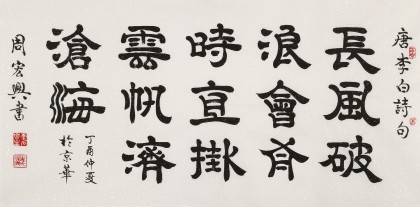 唐李白詩句
長風破
浪會有
時直掛
雲帆濟
滄海
丁酉仲夏
於京華
周宏興書